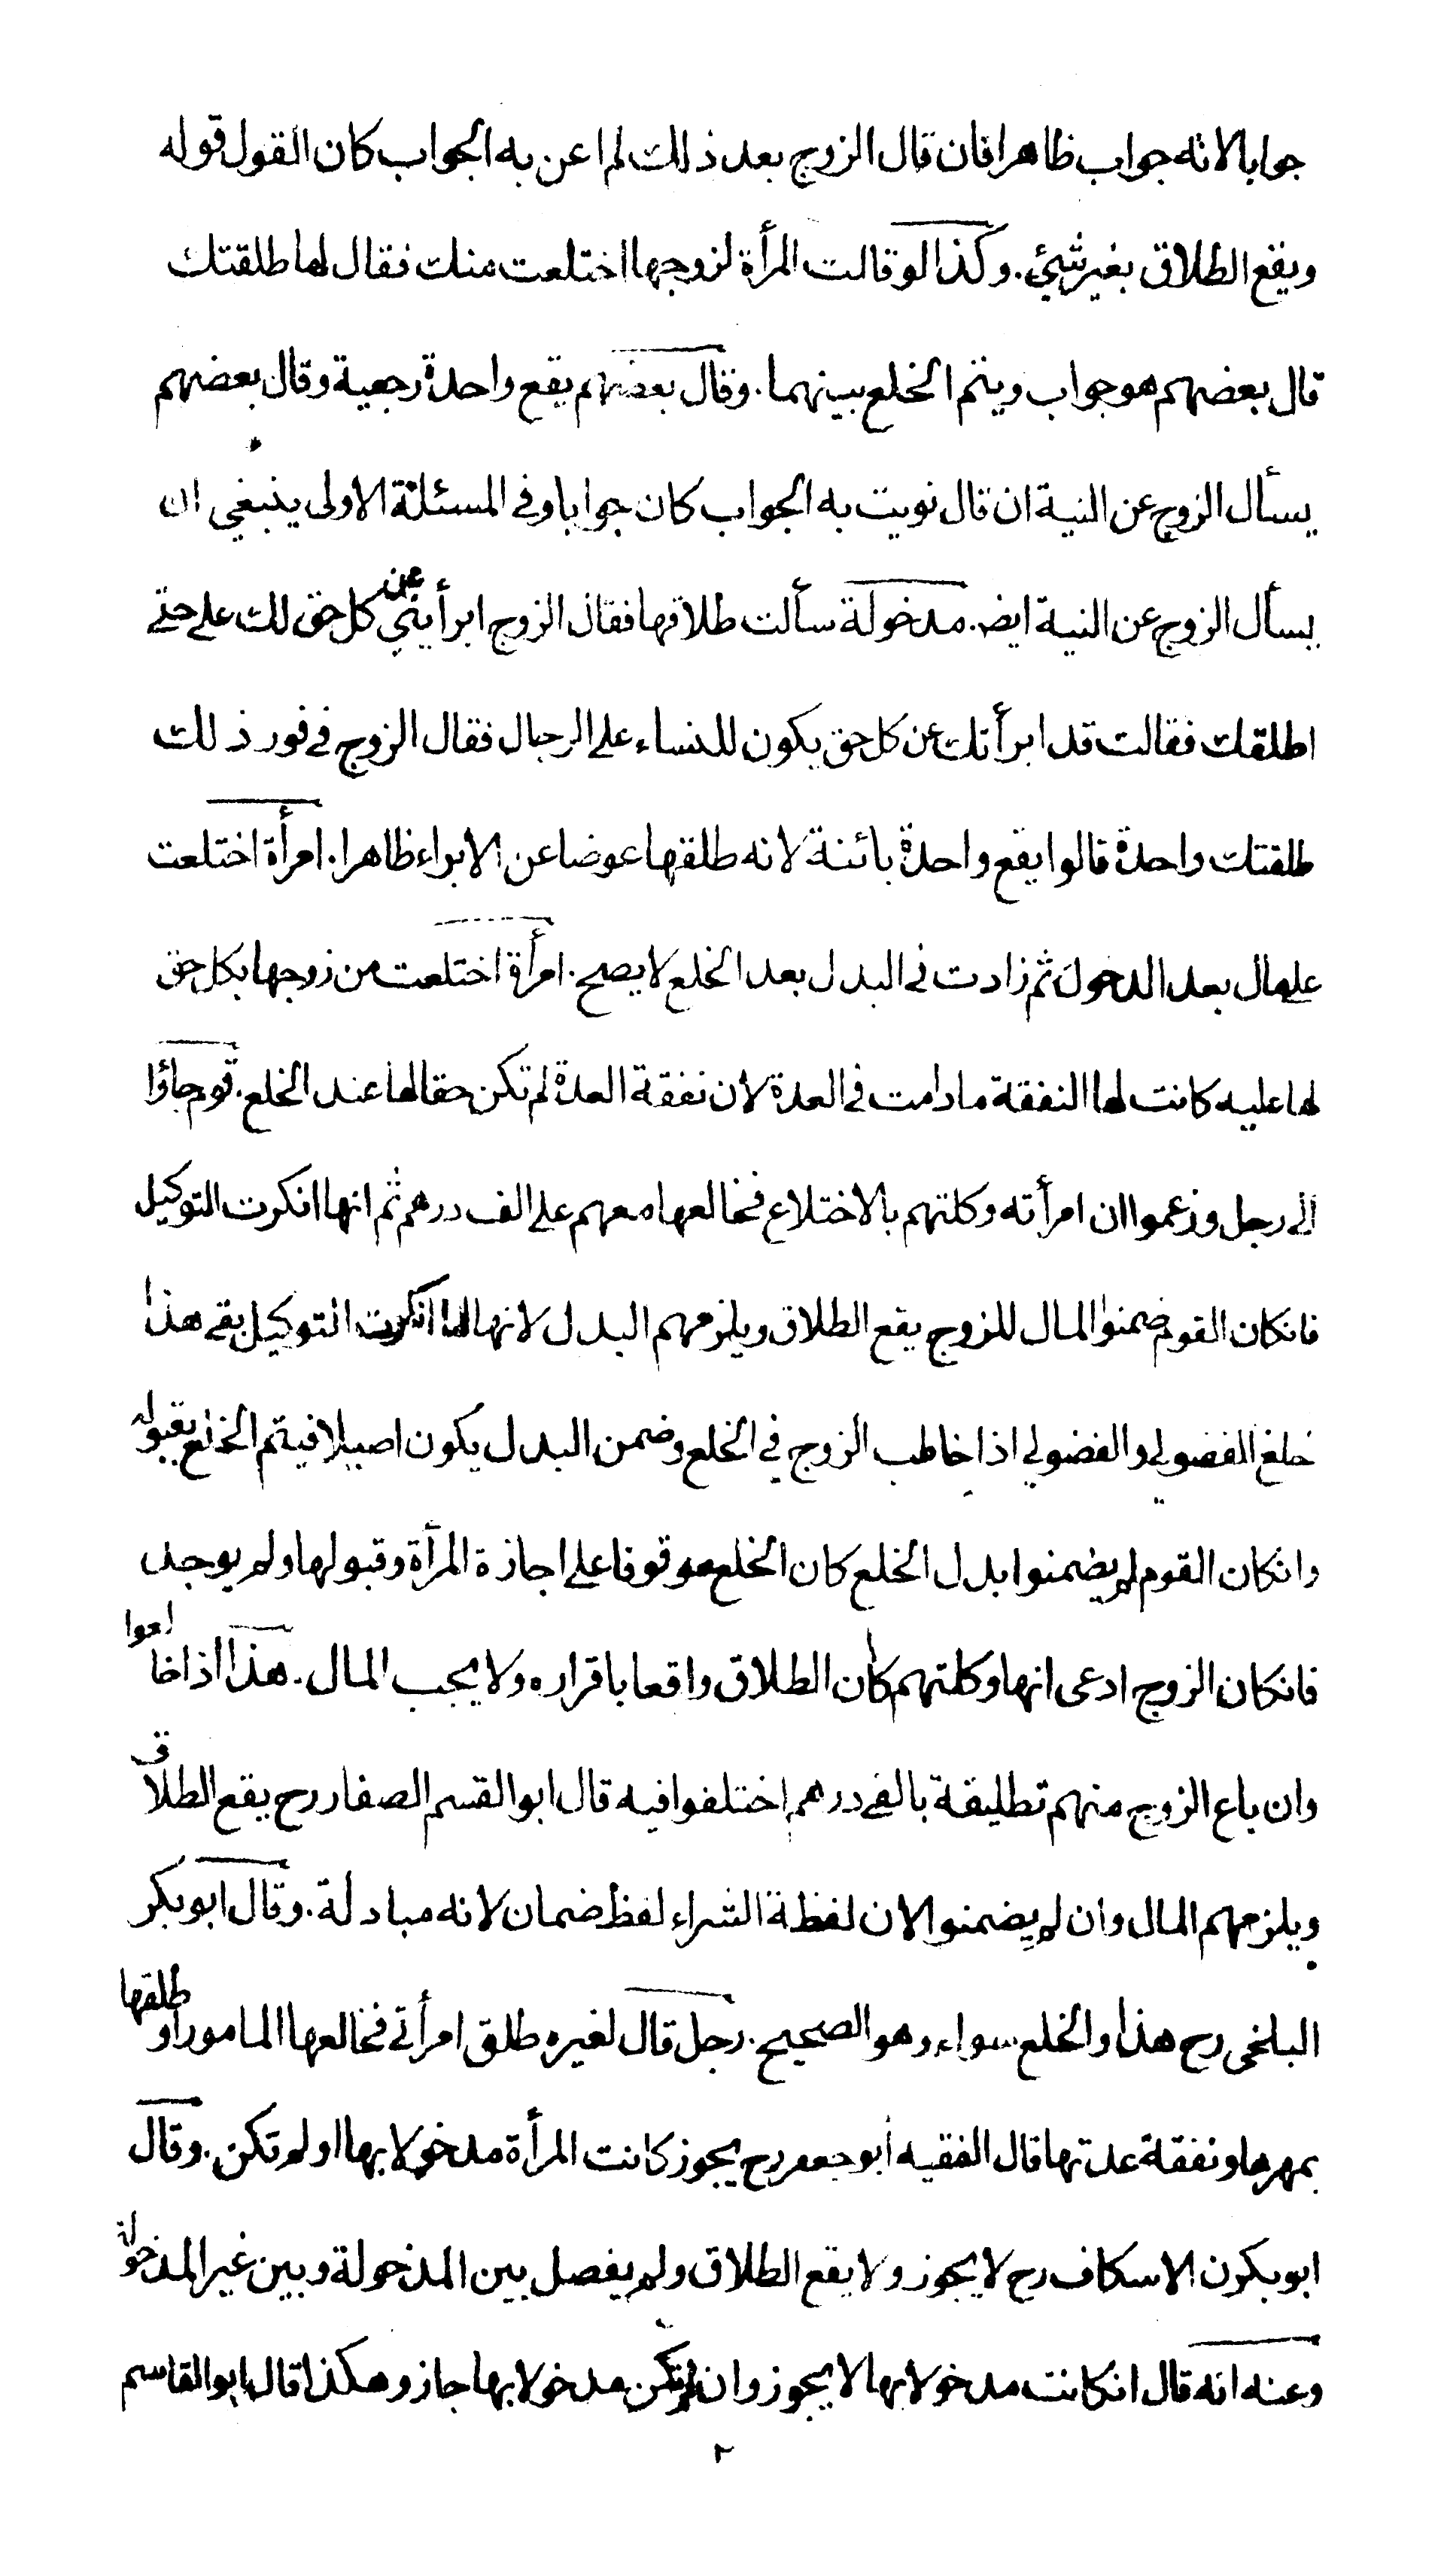 جوابا لانه جواب ظاهرا فان قال الزوج بعد ذلك لم اعن به الجواب كان القول قوله
ويقع الطلاق بغير شيئ. وكذا لو قالت المرأة لزوجها اختلعت منك فقال لها طلقتك
قال بعضهم هو جواب ويتم الخلع بينهما. وقال بعضهم يقع واحدة رجعية وقال بعضهم
يسأل الزوج عن النية ان قال نويت به الجواب كان جوابا وفي المسئلة الاولى ينبغي ان
يسأل الزوج عن النية ايضا. مدخولة سألت طلاقها فقال الزوج ابرأيني عن كل حق لك علي حتى
اطلقك فقالت قد ابرأتك عن كل حق يكون للنساء على الرجال فقال الزوج في فور ذلك
طلقتك واحدة قالوا يقع واحدة بائنة لانه طلقها عوضا عن الابراء ظاهرا. امرأة اختلعت
على مال بعد الدخول ثم زادت في البدل بعد الخلع لا يصح. امرأة اختلعت من زوجها بكل حق
لها عليه كانت لها النفقة ما دامت في العدة لان نفقة العدة لم تكن حقا لها عند الخلع. قوم جاؤا
الى رجل وزعموا ان امرأته وكلتهم بالاختلاع فخالعها معهم على الف درهم ثم انها انكرت التوكيل
فانكان القوم ضمنوا المال للزوج يقع الطلاق ويلزمهم البدل لانها لما انكرت التوكيل بقي هذا
خلع الفضولي والفضولي اذا خاطب الزوج في الخلع وضمن البدل يكون اصيلا فيتم الخلع بقبوله
وانكان القوم لم يضمنوا بدل الخلع كان الخلع موقوفا على اجازة المرأة وقبولها ولم يوجد
فانكان الزوج ادعى انها وكلتهم كان الطلاق واقعا باقراره ولا يجب المال. هذا اذا خالعوا
وان باع الزوج منهم تطليقة بالفي درهم اختلفوا فيه قال ابو القسم الصفار رح يقع الطلاق
ويلزمهم المال وان لم يضمنوا لان لفظة الشراء لفظ ضمان لانه مبادلة. وقال ابو بكر
البلخي رح هذا والخلع سواء وهو الصحيح. رجل قال لغيره طلق امرأتي فخالعها المامور او طلقها
بمهرها ونفقة عدتها قال الفقيه أبو جعفر رح يجوز كانت المرأة مدخولا بها او لم تكن. وقال
ابو بكرن الاسكاف رح لا يجوز ولا يقع الطلاق ولم يفصل بين المدخولة وبين غير المدخولة
وعنه انه قال انكانت مدخولا بها لا يجوز وان لم تكن مدخولا بها جاز وهكذا قال ابو القاسم
٢